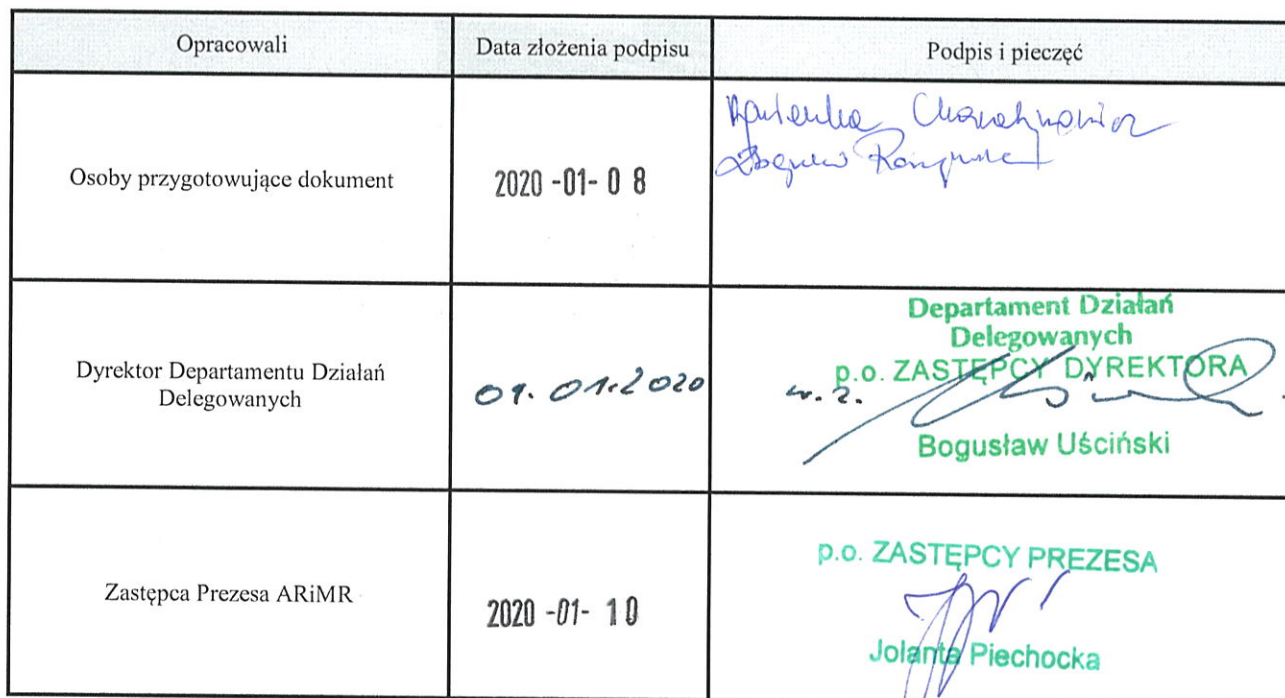 Opracowali
Data złożenia podpisu
Podpis i pieczęć
Osoby przygotowujące dokument
2020 -01- 0 8
Dyrektor Departamentu Działań
Delegowanych
09.01.2020
Departament Działań
Delegowanych
p.o. ZASTĘPCY DYREKTORA
w.z.
Bogusław Uściński
Zastępca Prezesa ARiMR
2020 -01- 1 0
p.o. ZASTĘPCY PREZESA
Jolanta Piechocka